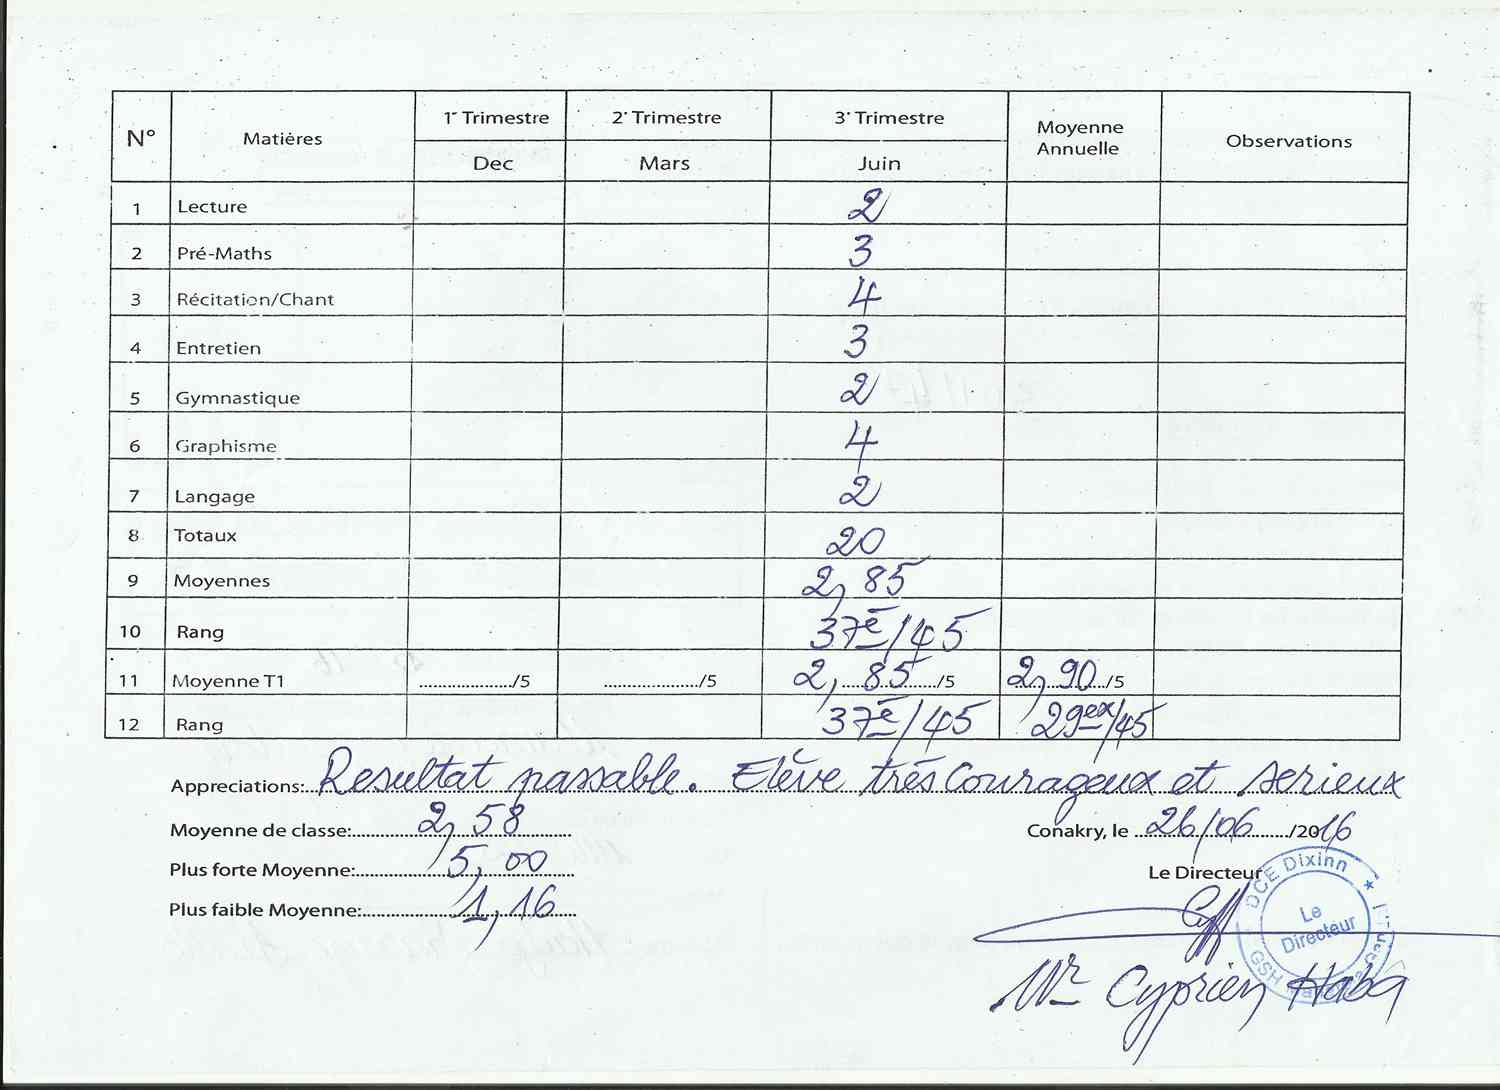 N° Matières 1er Trimestre 2e Trimestre 3e Trimestre Moyenne Annuelle Observations
Dec Mars Juin
1 Lecture 2
2 Pré-Maths 3
3 Récitation/Chant 4
4 Entretien 3
5 Gymnastique 2
6 Graphisme 4
7 Langage 2
8 Totaux 20
9 Moyennes 2,85
10 Rang 37è/45
11 Moyenne T1 ................../5 ..................../5 2,85/5 2,90/5
12 Rang 37è/45 29ex/45
Appreciations: Resultat passable. Elève très Courageux et serieux
Moyenne de classe: 2,58
Conakry, le 26/06/2016
Plus forte Moyenne: 5,00
Le Directeur
Plus faible Moyenne: 1,16
DCE Dixinn
Le Directeur
GSH
Mr Cyprien Haba